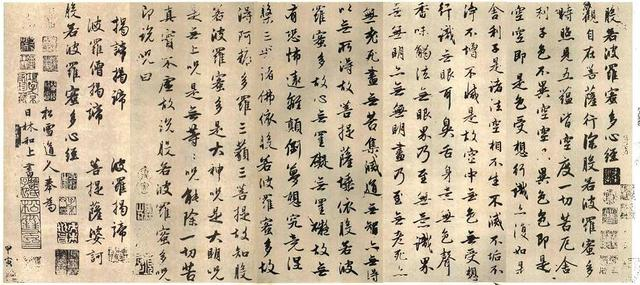 般若波羅蜜多心經
觀自在菩薩行深般若波羅蜜多
時照見五蘊皆空度一切苦厄舍
利子色不異空空不異色色即是
空空即是色受想行識亦復如是
舍利子是諸法空相不生不滅不垢不
淨不增不減是故空中無色無受想
行識無眼耳鼻舌身意無色聲
香味觸法無眼界乃至無意識界
無無明亦無無明盡乃至無老死亦
無老死盡無苦集滅道無智亦無得
以無所得故菩提薩埵依般若波
羅蜜多故心無罣礙無罣礙故無
有恐怖遠離顛倒夢想究竟涅
槃三世諸佛依般若波羅蜜多故
得阿耨多羅三藐三菩提故知般
若波羅蜜多是大神呪是大明呪
是無上呪是無等等呪能除一切苦
真實不虛故說般若波羅蜜多呪
即說呪曰
揭諦揭諦 波羅揭諦
波羅僧揭諦 菩提薩婆訶
般若波羅蜜多心經
松雪道人奉為
日林和上書
甲寅